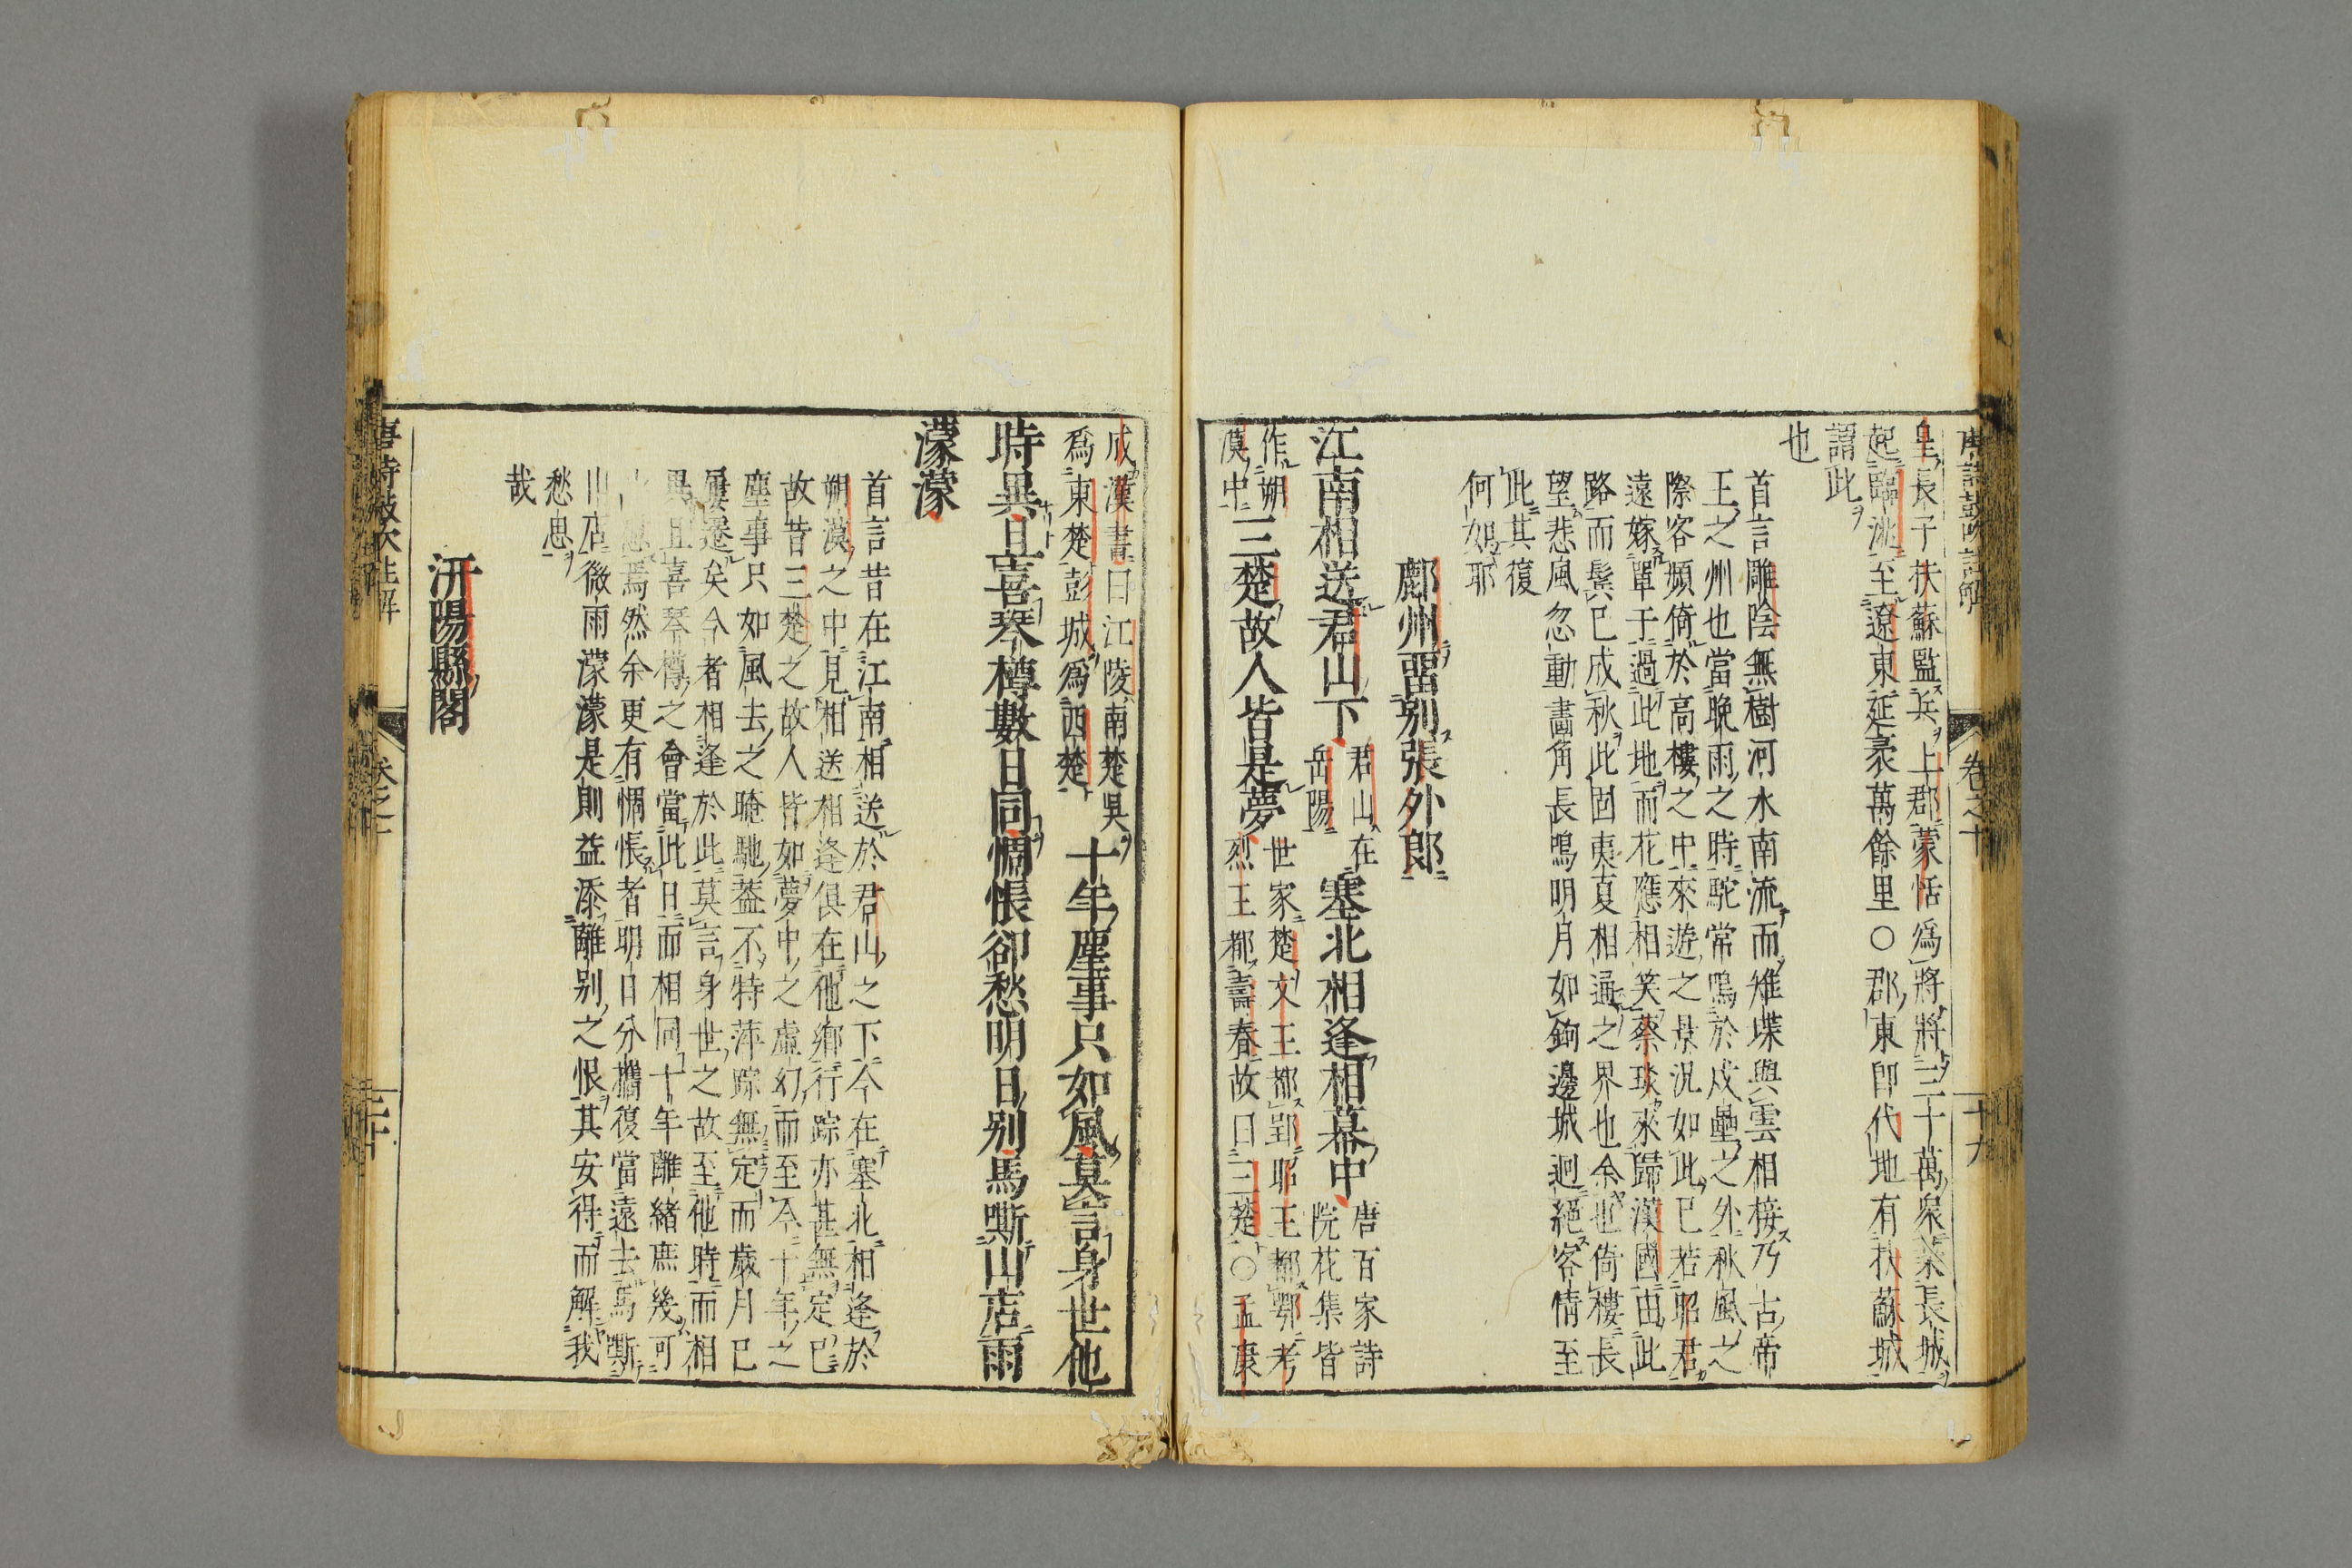 唐詩鼓吹註解 卷之十 十九
皇長子扶蘇監兵上郡蒙恬爲將將三十萬衆築長城
起臨洮至遼東延袤萬餘里○郡東卽代地有扶蘇城
謂此
也
首言雕陰無樹河水南流而雉堞與雲相接乃古帝
王之州也當晚雨之時駝常鳴於戍壘之外秋風之
際客頻倚於高樓之中來遊之景況如此已若昭君
遠嫁單于過此地而花應相笑蔡琰來歸漢國由此
路而鬂已成秋此固夷夏相通之界也余也倚樓長
望悲風忽動畵角長鳴明月如鉤邊城迥絕客情至
此其復
何如耶
鄜州留別張外郎
江南相送君山下君山在岳陽塞北相逢相幕中唐百家詩院花集皆
作朔漠中三楚故人皆是夢世家楚文王都郢昭王都鄂考烈王都壽春故曰三楚○孟康
成漢書曰江陵南楚吳爲東楚彭城爲西楚十年塵事只如風莫言身世他
時異且喜琴樽數日同惆悵卻愁明日别馬嘶山店雨
濛濛
首言昔在江南相送於君山之下今在塞北相逢於
朔漠之中見相送相逢俱在他鄉行踪亦甚無定已
故昔三楚之故人皆如夢中之虛幻而至今十年之
塵事只如風去之晻馳葢不特萍踪無定而歲月已
屢遷矣今者相逢於此莫言身世之故至他時而相
異且喜琴樽之會當此日而相同十年離緒庶幾可
焉然余更有惆悵者明日分攜復當遠去馬嘶
山店微雨濛濛是則益添離别之恨其安得而解我
愁思
哉
汧陽縣閣
唐詩鼓吹註解 卷之十 二十